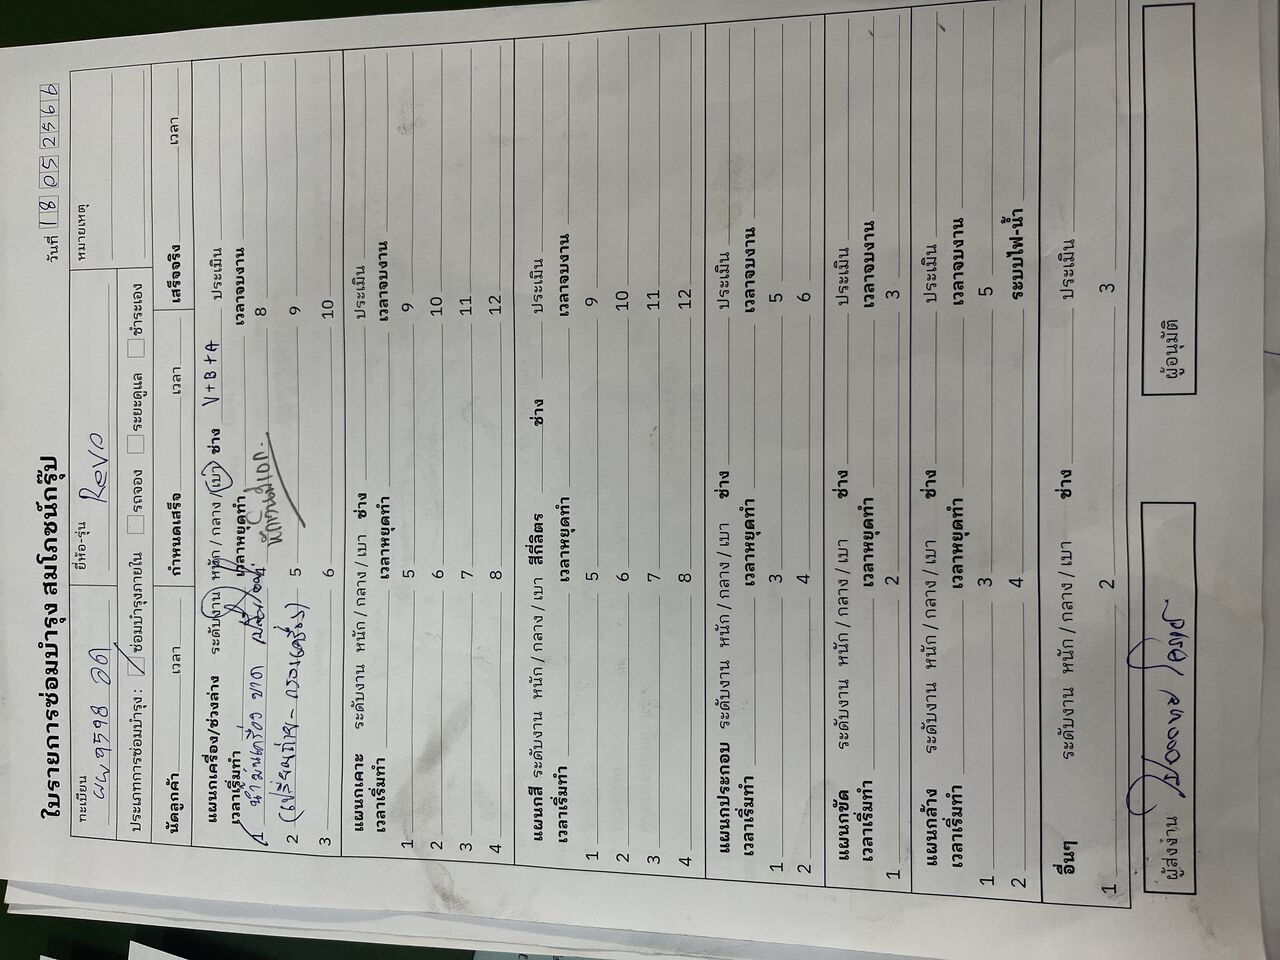 ใบรายการซ่อมบำรุง สมโภชน์กรุ๊ป
วันที่ 18 05 2566
ทะเบียน ผผ 9598 ยี่ห้อ-รุ่น Revo หมายเหตุ
ประเภทการซ่อมบำรุง : ซ่อมบำรุงภายใน รถจอง ระยะดูแล ชำระเอง
นัดลูกค้า เวลา กำหนดเสร็จ เวลา เสร็จจริง เวลา
แผนกเครื่อง/ช่วงล่าง ระดับงาน หนัก / กลาง / เบา ช่าง V+B+A ประเมิน
เวลาเริ่มทำ เวลาหยุดทำ เวลาจบงาน
1 น้ำมันเครื่อง ขาด 8
2 (เปลี่ยนถ่าย - กรองเครื่อง) 5 9
3 6 10
แผนกเคาะ ระดับงาน หนัก / กลาง / เบา ช่าง ประเมิน
เวลาเริ่มทำ เวลาหยุดทำ เวลาจบงาน
1 5 9
2 6 10
3 7 11
4 8 12
แผนกสี ระดับงาน หนัก / กลาง / เบา สีกี่ลิตร ช่าง ประเมิน
เวลาเริ่มทำ เวลาหยุดทำ เวลาจบงาน
1 5 9
2 6 10
3 7 11
4 8 12
แผนกประกอบ ระดับงาน หนัก / กลาง / เบา ช่าง ประเมิน
เวลาเริ่มทำ เวลาหยุดทำ เวลาจบงาน
1 3 5
2 4 6
แผนกขัด ระดับงาน หนัก / กลาง / เบา ช่าง ประเมิน
เวลาเริ่มทำ เวลาหยุดทำ เวลาจบงาน
1 2 3
แผนกล้าง ระดับงาน หนัก / กลาง / เบา ช่าง ประเมิน
เวลาเริ่มทำ เวลาหยุดทำ เวลาจบงาน
1 3 5
2 4 ระบบไฟ-น้ำ
อื่นๆ ระดับงาน หนัก / กลาง / เบา ช่าง ประเมิน
1 2 3
ผู้ส่งงาน ผู้อนุมัติ